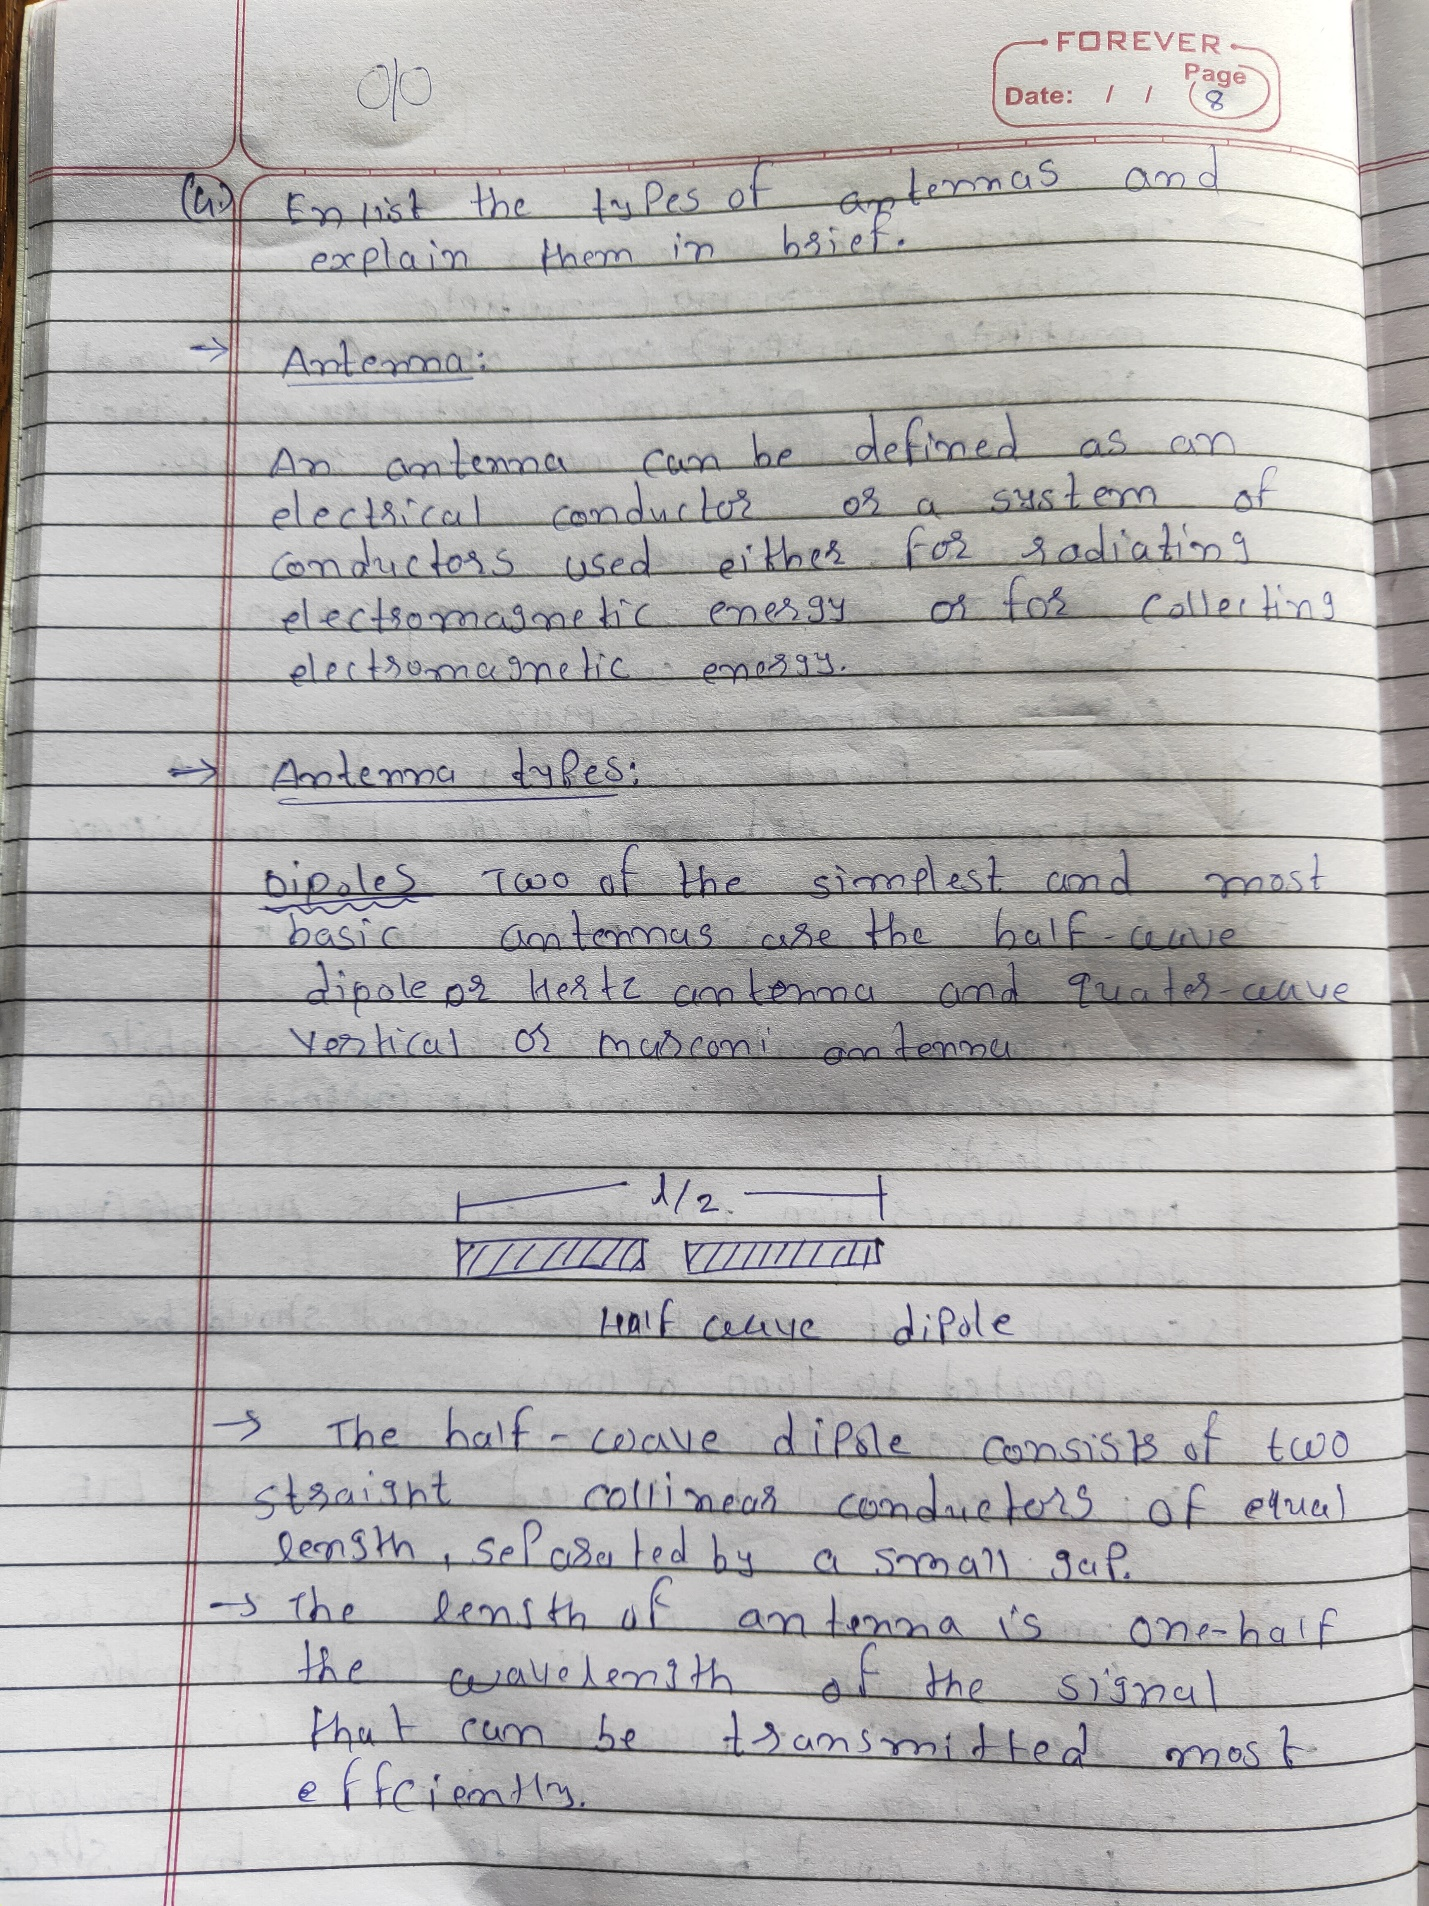 FOREVER
Page
Date: / / 8
(4.) Enlist the types of antennas and
explain them in brief.
→ Antenna:
An antenna can be defined as an
electrical conductor or a system of
conductors used either for radiating
electromagnetic energy or for collecting
electromagnetic energy.
→ Antenna types:
Dipoles Two of the simplest and most
basic antennas are the half-wave
dipole or Hertz antenna and quater-wave
vertical or marconi antenna
λ/2
Half wave dipole
→ The half-wave dipole consists of two
straight collinear conductors of equal
length, separated by a small gap.
→ The length of antenna is one-half
the wavelength of the signal
that can be transmitted most
effciently.